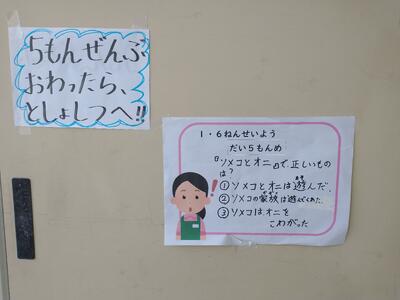 5もんぜんぶ
おわったら、
としょしつへ!!
1・6ねんせいよう
だい5もんめ
『ソメコとオニ』で正しいもの
は?
①ソメコとオニは遊んだ。
②ソメコの家族は遊んでくれた。
③ソメコはオニを
こわがった